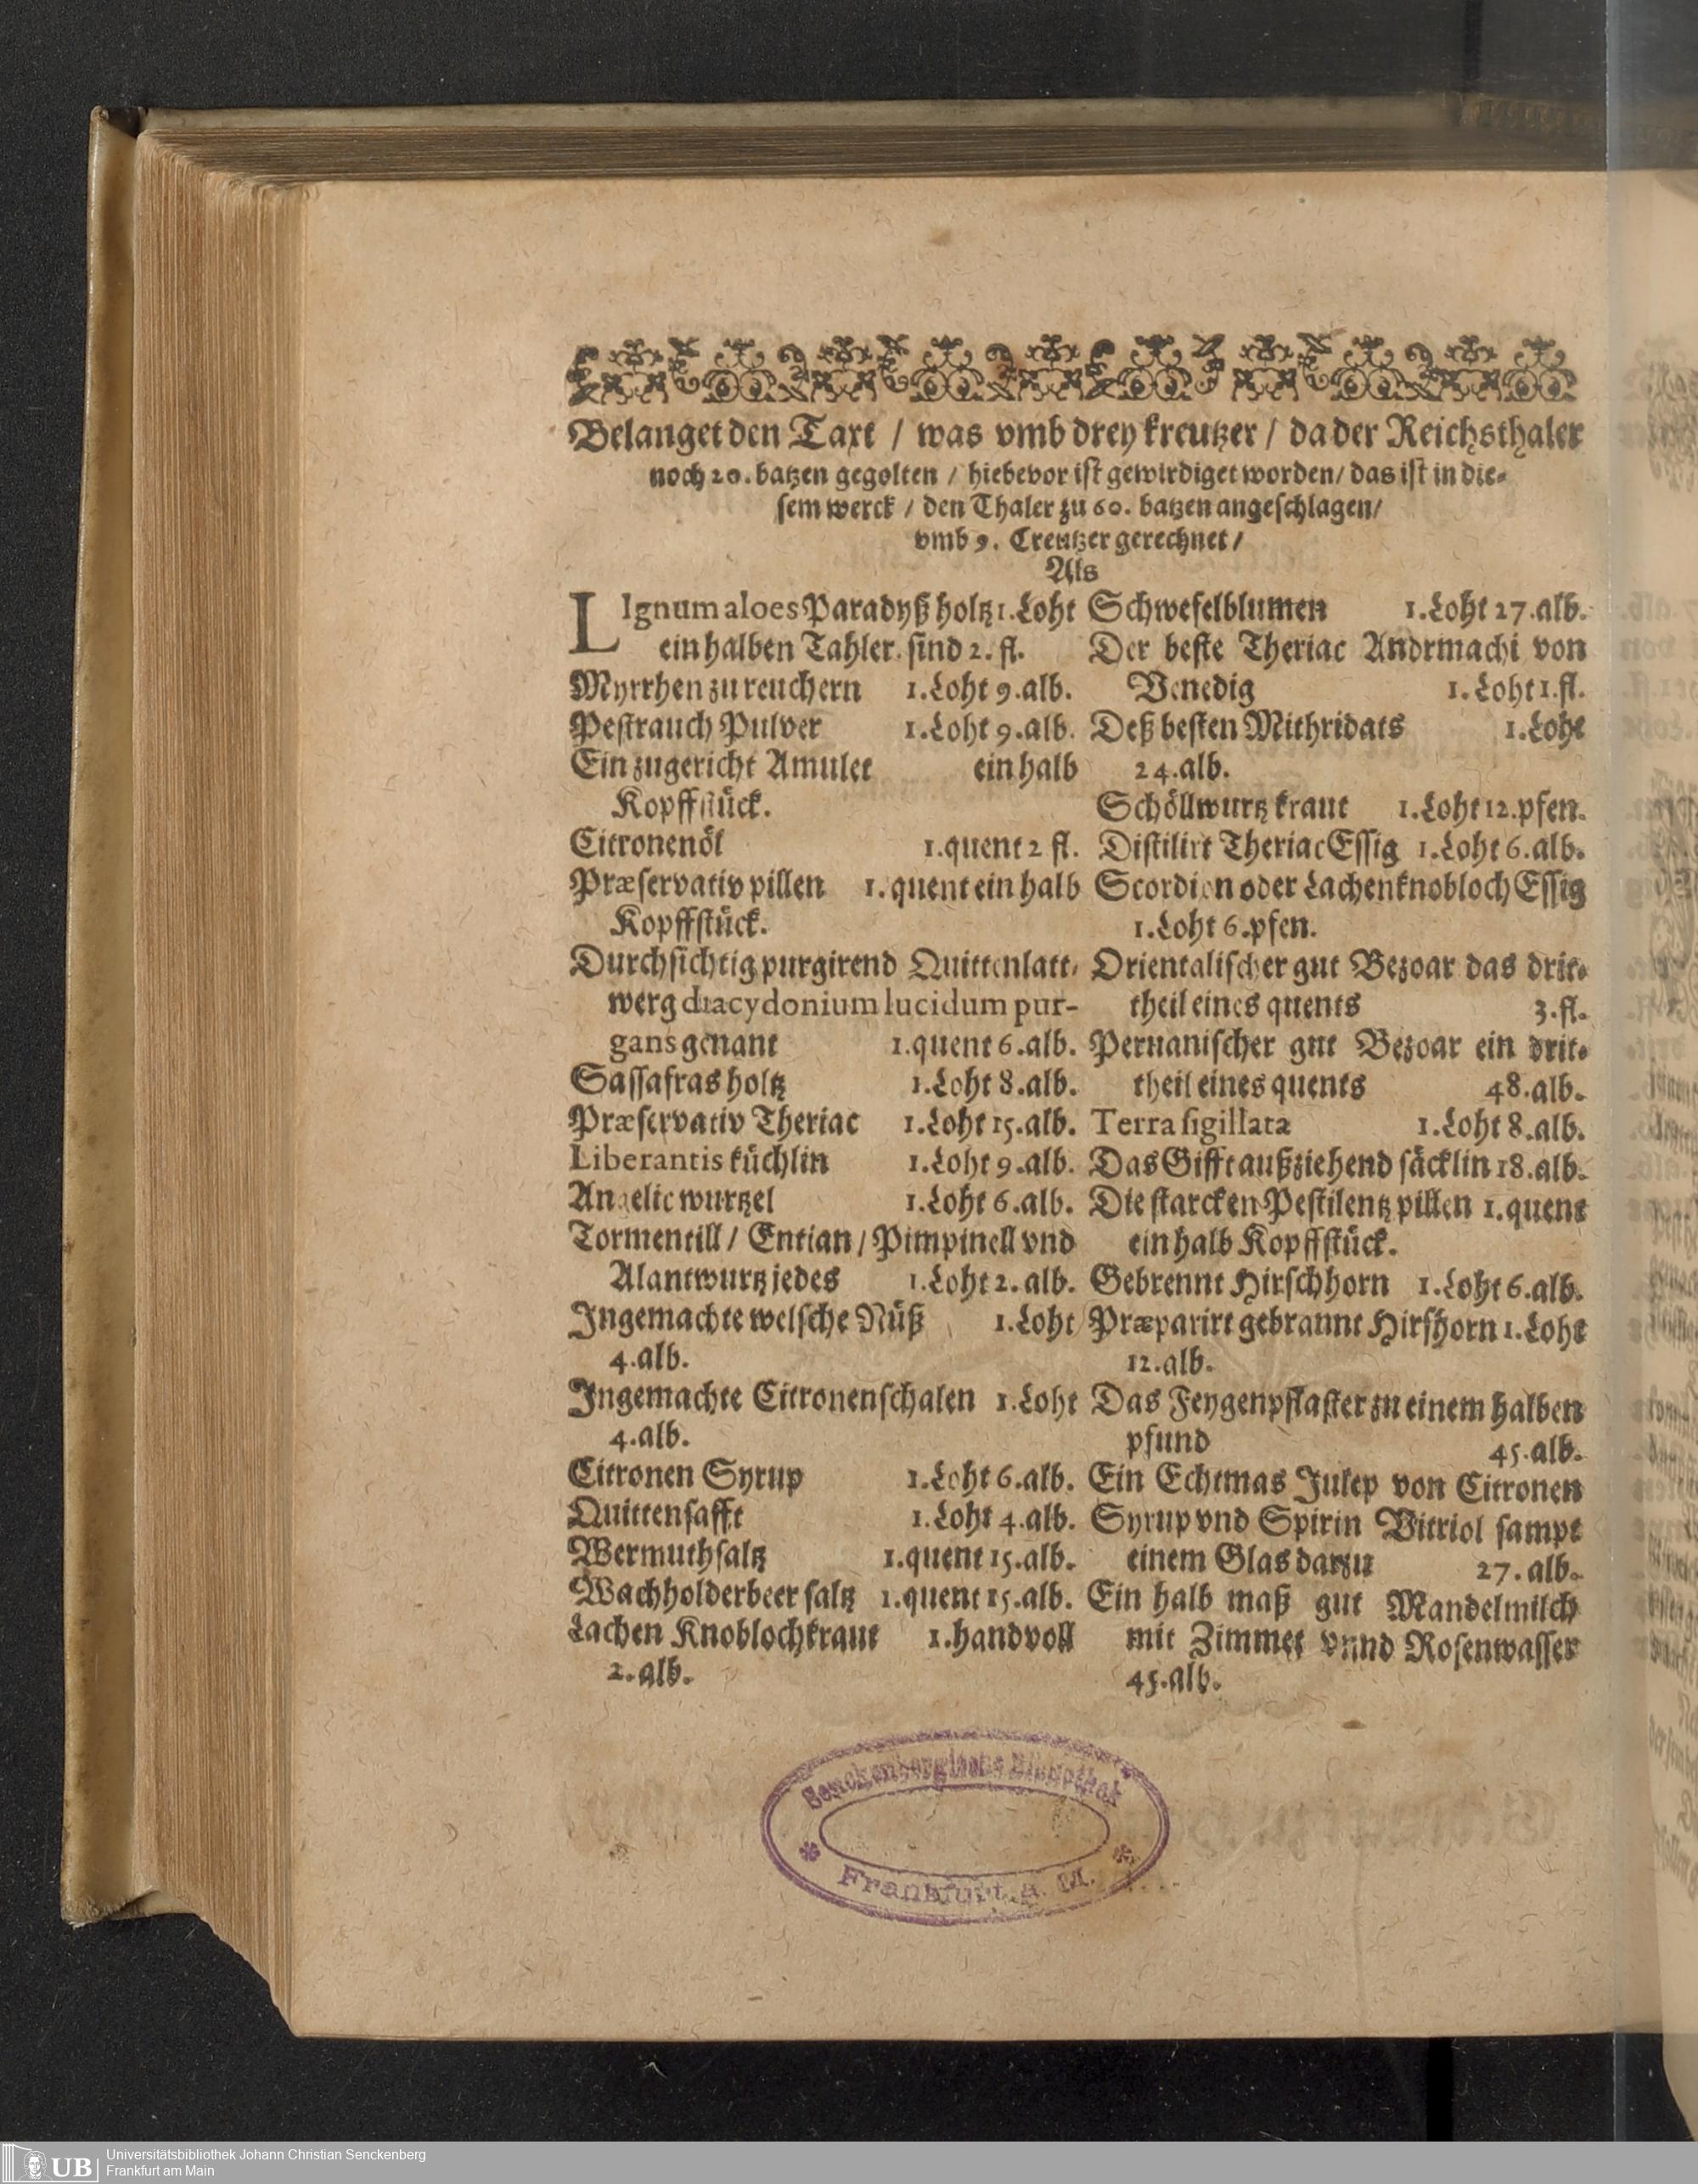 Belanget den Taxt / was vmb drey kreutzer / da der Reichsthaler
noch 20. batzen gegolten / hiebevor ist gewirdiget worden / das ist in die-
sem werck / den Thaler zu 60. batzen angeschlagen /
vmb 9. Creutzer gerechnet /
Als
LIgnum aloes Paradyß holtz 1. Loht
ein halben Tahler sind 2. fl.
Myrrhen zu reuchern 1. Loht 9. alb.
Pestrauch Pulver 1. Loht 9. alb.
Ein zugericht Amulet ein halb
Kopffstück.
Citronenöl 1. quent 2 fl.
Præservativ pillen 1. quent ein halb
Kopffstück.
Durchsichtig purgirend Quittenlatt-
werg diacydonium lucidum pur-
gans genant 1. quent 6. alb.
Sassafras holtz 1. Loht 8. alb.
Præservativ Theriac 1. Loht 15. alb.
Liberantis küchlin 1. Loht 9. alb.
Angelic wurtzel 1. Loht 6. alb.
Tormentill / Entian / Pimpinell vnd
Alantwurtz jedes 1. Loht 2. alb.
Ingemachte welsche Nüß 1. Loht
4. alb.
Ingemachte Citronenschalen 1. Loht
4. alb.
Citronen Syrup 1. Loht 6. alb.
Quittensafft 1. Loht 4. alb.
Wermuthsaltz 1. quent 15. alb.
Wachholderbeer saltz 1. quent 15. alb.
Lachen Knoblochkraut 1. handvoll
2. alb.
Schwefelblumen 1. Loht 27. alb.
Der beste Theriac Andrmachi von
Venedig 1. Loht 1. fl.
Deß besten Mithridats 1. Loht
24. alb.
Schöllwurtz kraut 1. Loht 12. pfen.
Distilirt Theriac Essig 1. Loht 6. alb.
Scordien oder Lachenknobloch Essig
1. Loht 6. pfen.
Orientalischer gut Bezoar das drit-
theil eines quents 3. fl.
Peruanischer gut Bezoar ein drit-
theil eines quents 48. alb.
Terra sigillata 1. Loht 8. alb.
Das Gifft außziehend säcklin 18. alb.
Die starcken Pestilentz pillen 1. quent
ein halb Kopffstück.
Gebrennt Hirschhorn 1. Loht 6. alb.
Præparirt gebrannt Hirshorn 1. Loht
12. alb.
Das Feygenpflaster zu einem halben
pfund 45. alb.
Ein Echtmas Julep von Citronen
Syrup vnd Spirin Vitriol sampt
einem Glas darzu 27. alb.
Ein halb maß gut Mandelmilch
mit Zimmet vnnd Rosenwasser
45. alb.
Senckenbergische Bibliothek
Frankfurt a. M.
UB
Universitätsbibliothek Johann Christian Senckenberg
Frankfurt am Main